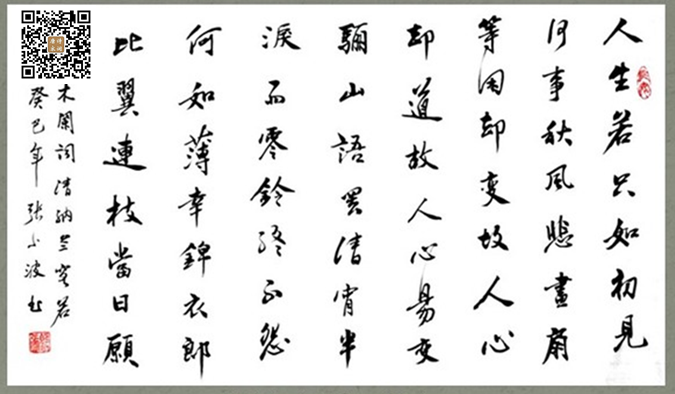 人生若只如初見
何事秋风悲畫扇
等闲却变故人心
却道故人心易变
驪山語罢清宵半
淚雨零鈴終不怨
何如薄幸錦衣郎
比翼連枝當日願
木蘭詞清納兰容若
癸巳年張小波书